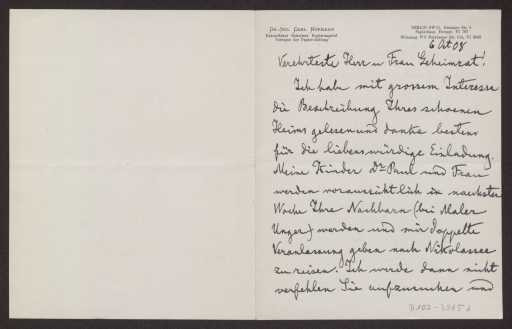 DR.-ING. CARL HOFMANN
BERLIN SW 11,
6 Okt 08
Verehrteste Herr u Frau Geheimrat!
Ich habe mit grossem Interesse
die Beschreibung Ihres schoenen
Heims gelesen und danke bestens
für die liebenswürdige Einladung.
Meine Kinder Dr. Paul und Frau
werden voraussichtlich in naechster
Woche Ihre Nachbarn (bei Maler
Unger) werden und mir doppelte
Veranlassung geben nach Nikolassee
zu reisen. Ich werde dann nicht
verfehlen Sie aufzusuchen und